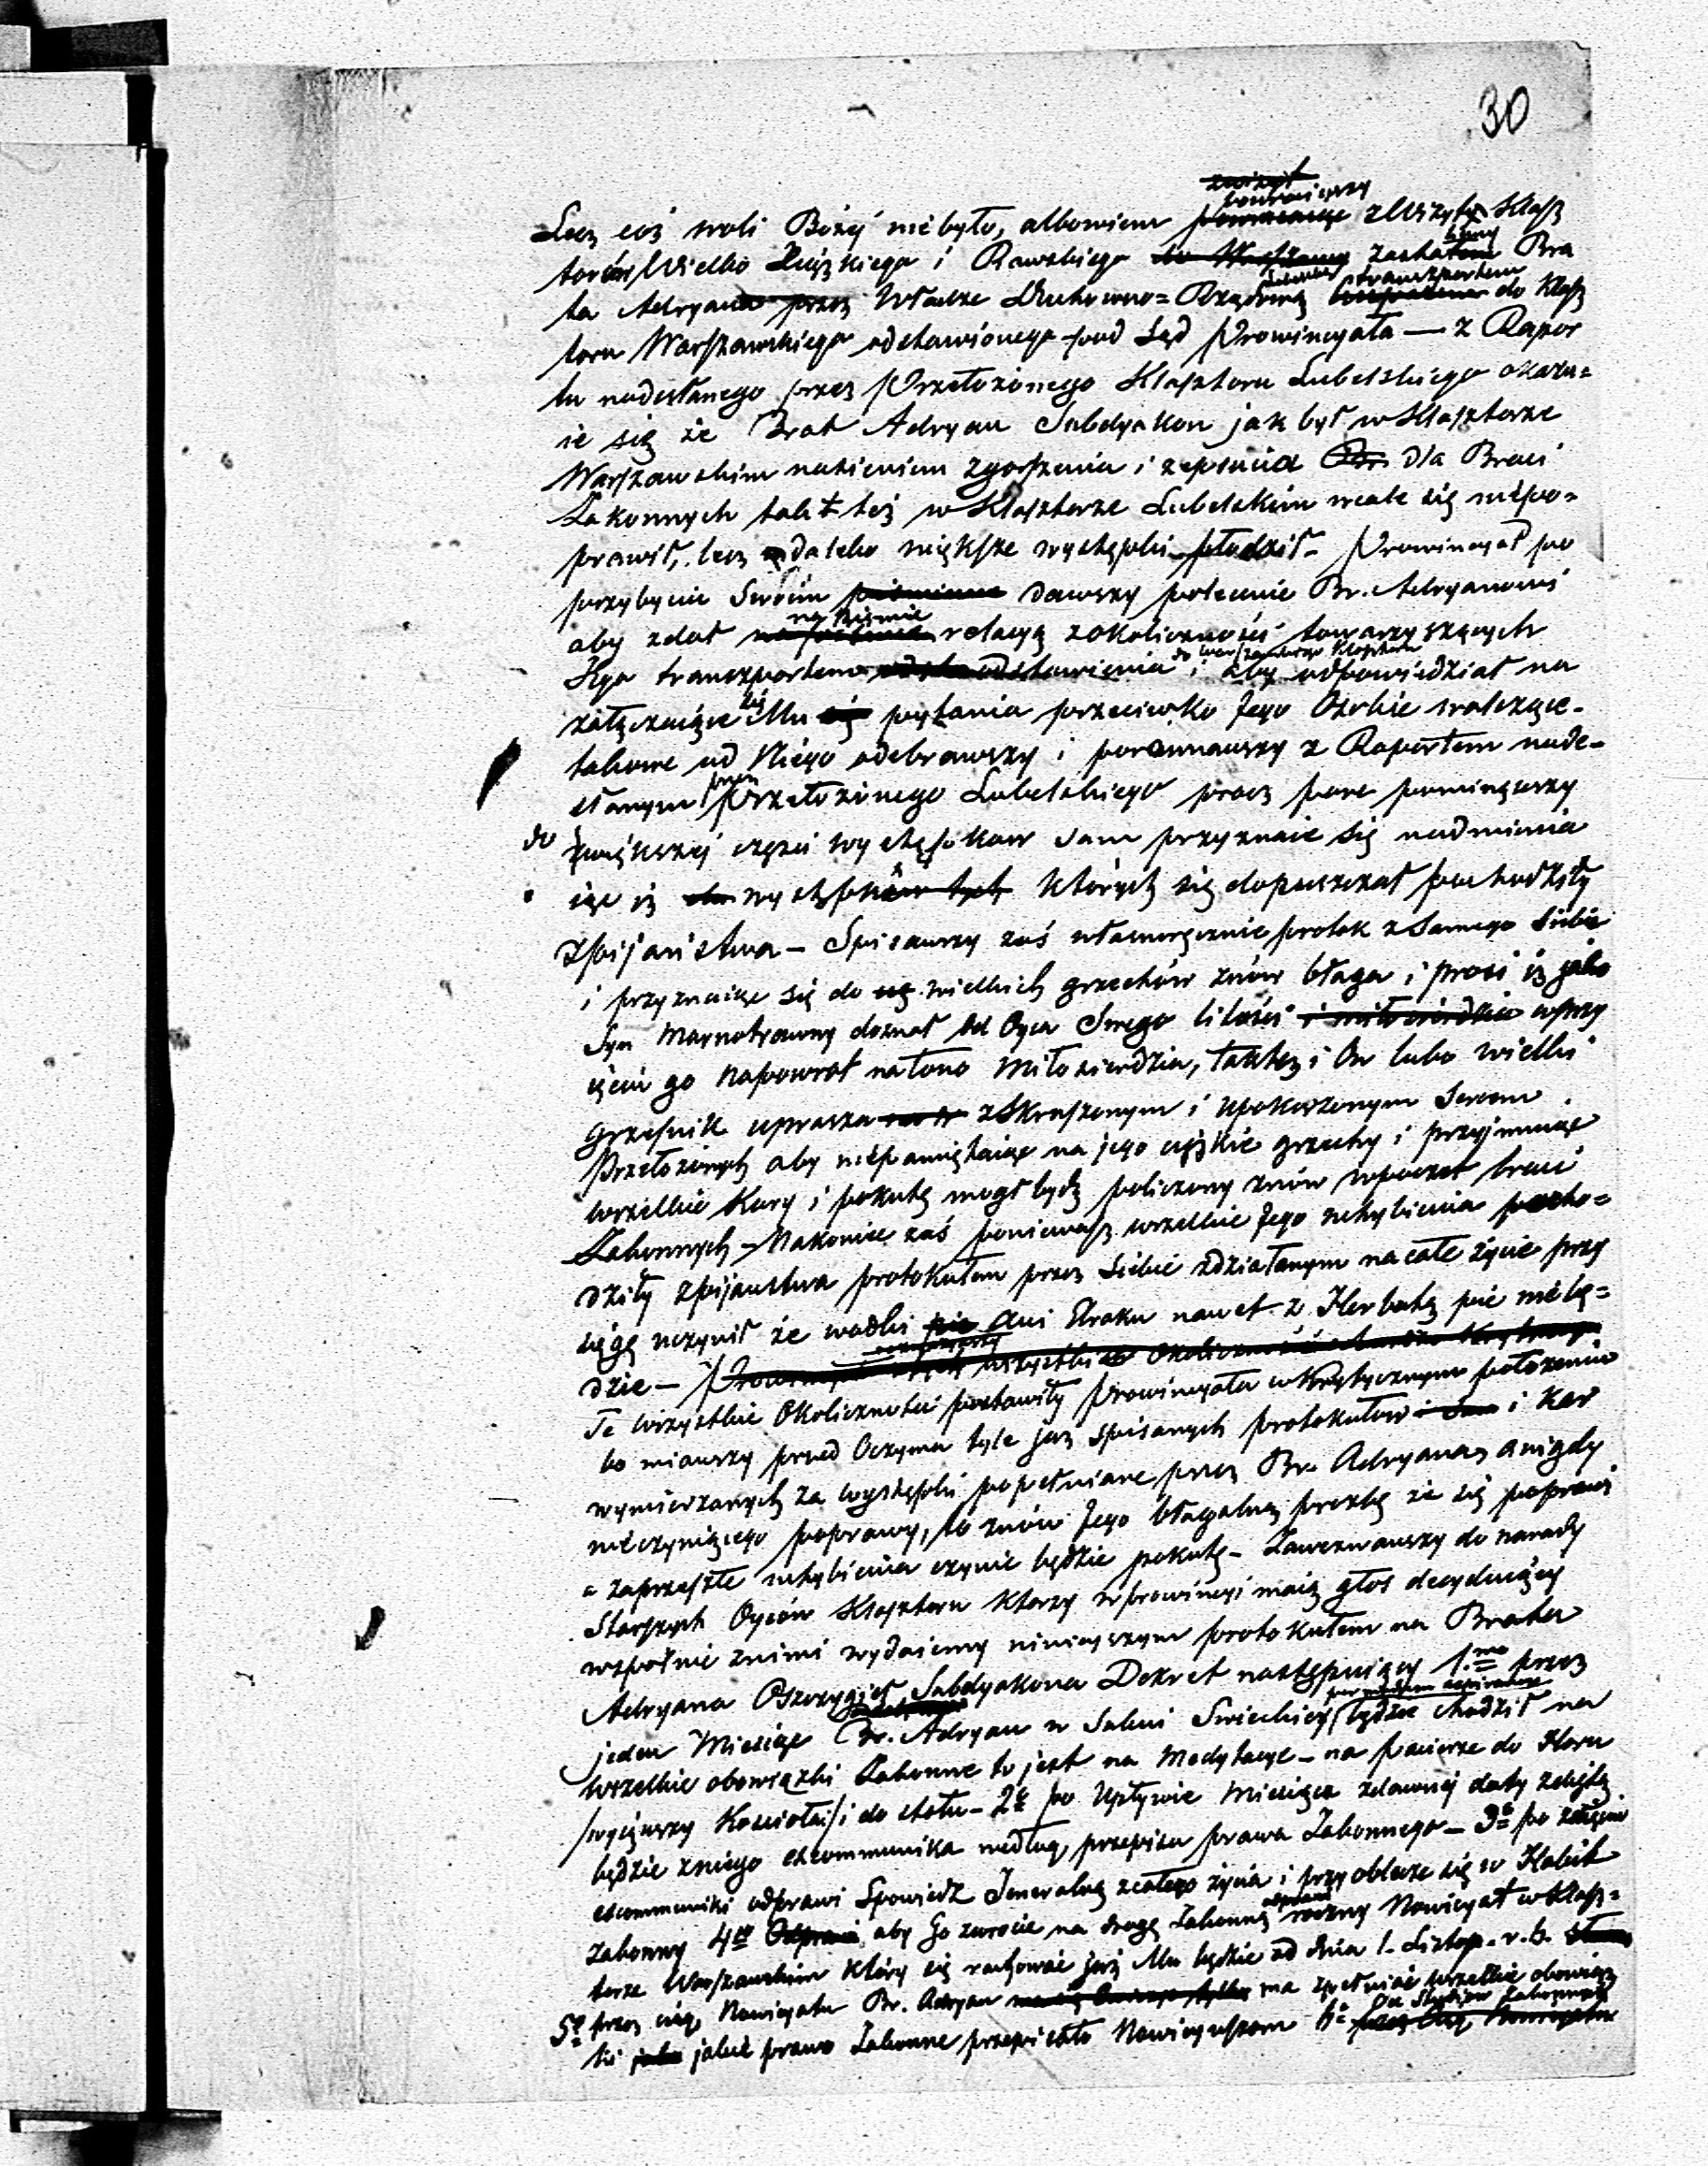 30
Lecz coś woli Bożéj niebyło, albowiem powróciwszy z Wizyty Klasz
torów Wielko Łęczkiego i Rawskiego Bra
ta Adryana przez Władze Duchowno=Rządową transportem do Klasz
toru Warszawskiego odstawionego pod Sąd Prowincyała — z Rapor
tu nadesłanego przez Przełożonego Klasztoru Lubelskiego okazu=
ie się że Brat Adryan Subdyakon jak był w Klasztorze
Warszawskim nasieniem zgorszenia i zepsucia dla Braci
Zakonnych takiż też w Klasztorze Lubelskim wcale się niepo=
prawił, lecz daleko większe występki płodził – Prowincyał po
przybyciu Swoim dawszy polecenie Br. Adryanowi
aby zdał na piśmie relacyą z okoliczności towarzyszących
Jego transportem odstawienia do Warszawskiego Klasztoru i aby odpowiedział na
załączaiące się Mu pytania przeciwko Jego Osobie walczące –
takowe od Niego odebrawszy i porównawszy z Raportem nade=
słanym przez Przełożonego Lubelskiego prócz pare pominąwszy
do większéj części występkow sam przyznaie się nadmienia
iąc iż występki których się dopuszczał pochodziły
z pijaństwa – Spisawszy zaś własnoręcznie protok z samego siebie
i przyznaiąc się do wielkich grzechów znów błaga i prosi iż jako
Syn Marnotrawny doznał od Oyca Swego litości w przy
ięciu go napowrót na łono Miłosierdzia, takteż i On lubo wielki
grzesznik uprasza z Skruszonym i upokorzonym Sercem
Przełożonych aby niepamiętaiąc na jego ciężkie grzechy i przyjmuiąc
wszelkie Kary i pokutę mógł bydź policzony znów w poczet braci
Zakonnych – Nakoniec zaś ponieważ wszelkie Jego uchybienia pocho=
dziły z pijaństwa protokułem przez Siebie zdziałanym na całe życie przy
sięgę uczynił że wodki ani Araku nawet z Herbatą pić niebę=
dzie –
Te wszystkie Okoliczności postawiły Prowincyała w Krytycznym położeniu
bo miawszy przed Oczyma tyle już spisanych protokułow i Kar
wymierzanych za występki popełniane przez Br. Adryana a nigdy
nieczyniącego poprawy, to znów Jego błagalną prozbę że się poprawi
a zaprzeszłe uchybienia czynić będzie pokutę – Zawezwawszy do narady
Starszych Oyców Klasztoru którzy w prowincyi maią głos decyduiący
wspólnie z nimi wydaiemy niniejszym protokułem na Brata
Adryana Subdyakona Dekret następuiący 1mo przez
jeden Miesiąc Br. Adryan w Sukni Swieckiéj będzie chodził na
wszelkie obowiązki Zakonne to jest na Medytacye – na pacierze do Horu
/wyjąwszy Kościoła/ i do stołu – 2e po upływie Miesiąca z dawnéj daty zdiętą
będzie z niego excommunika według przepisu prawa Zakonnego – 3o po zdięciu
excommuniki odprawi Spowiedź Jeneralną z całego życia i przyoblecze się w Habit
zakonny 4to aby Go zwrócić na drogę Zakonną odprawi roczny Nowicyat w Klasz=
torze Warszawskim który się rachować już Mu będzie od dnia 1. Listop. r. b.
5o przez ciąg Nowicyatu Br. Adryan ma spełniać wszelkie obowiąz
ki jakie prawo Zakonne przepisało Nowicyuszom 6o